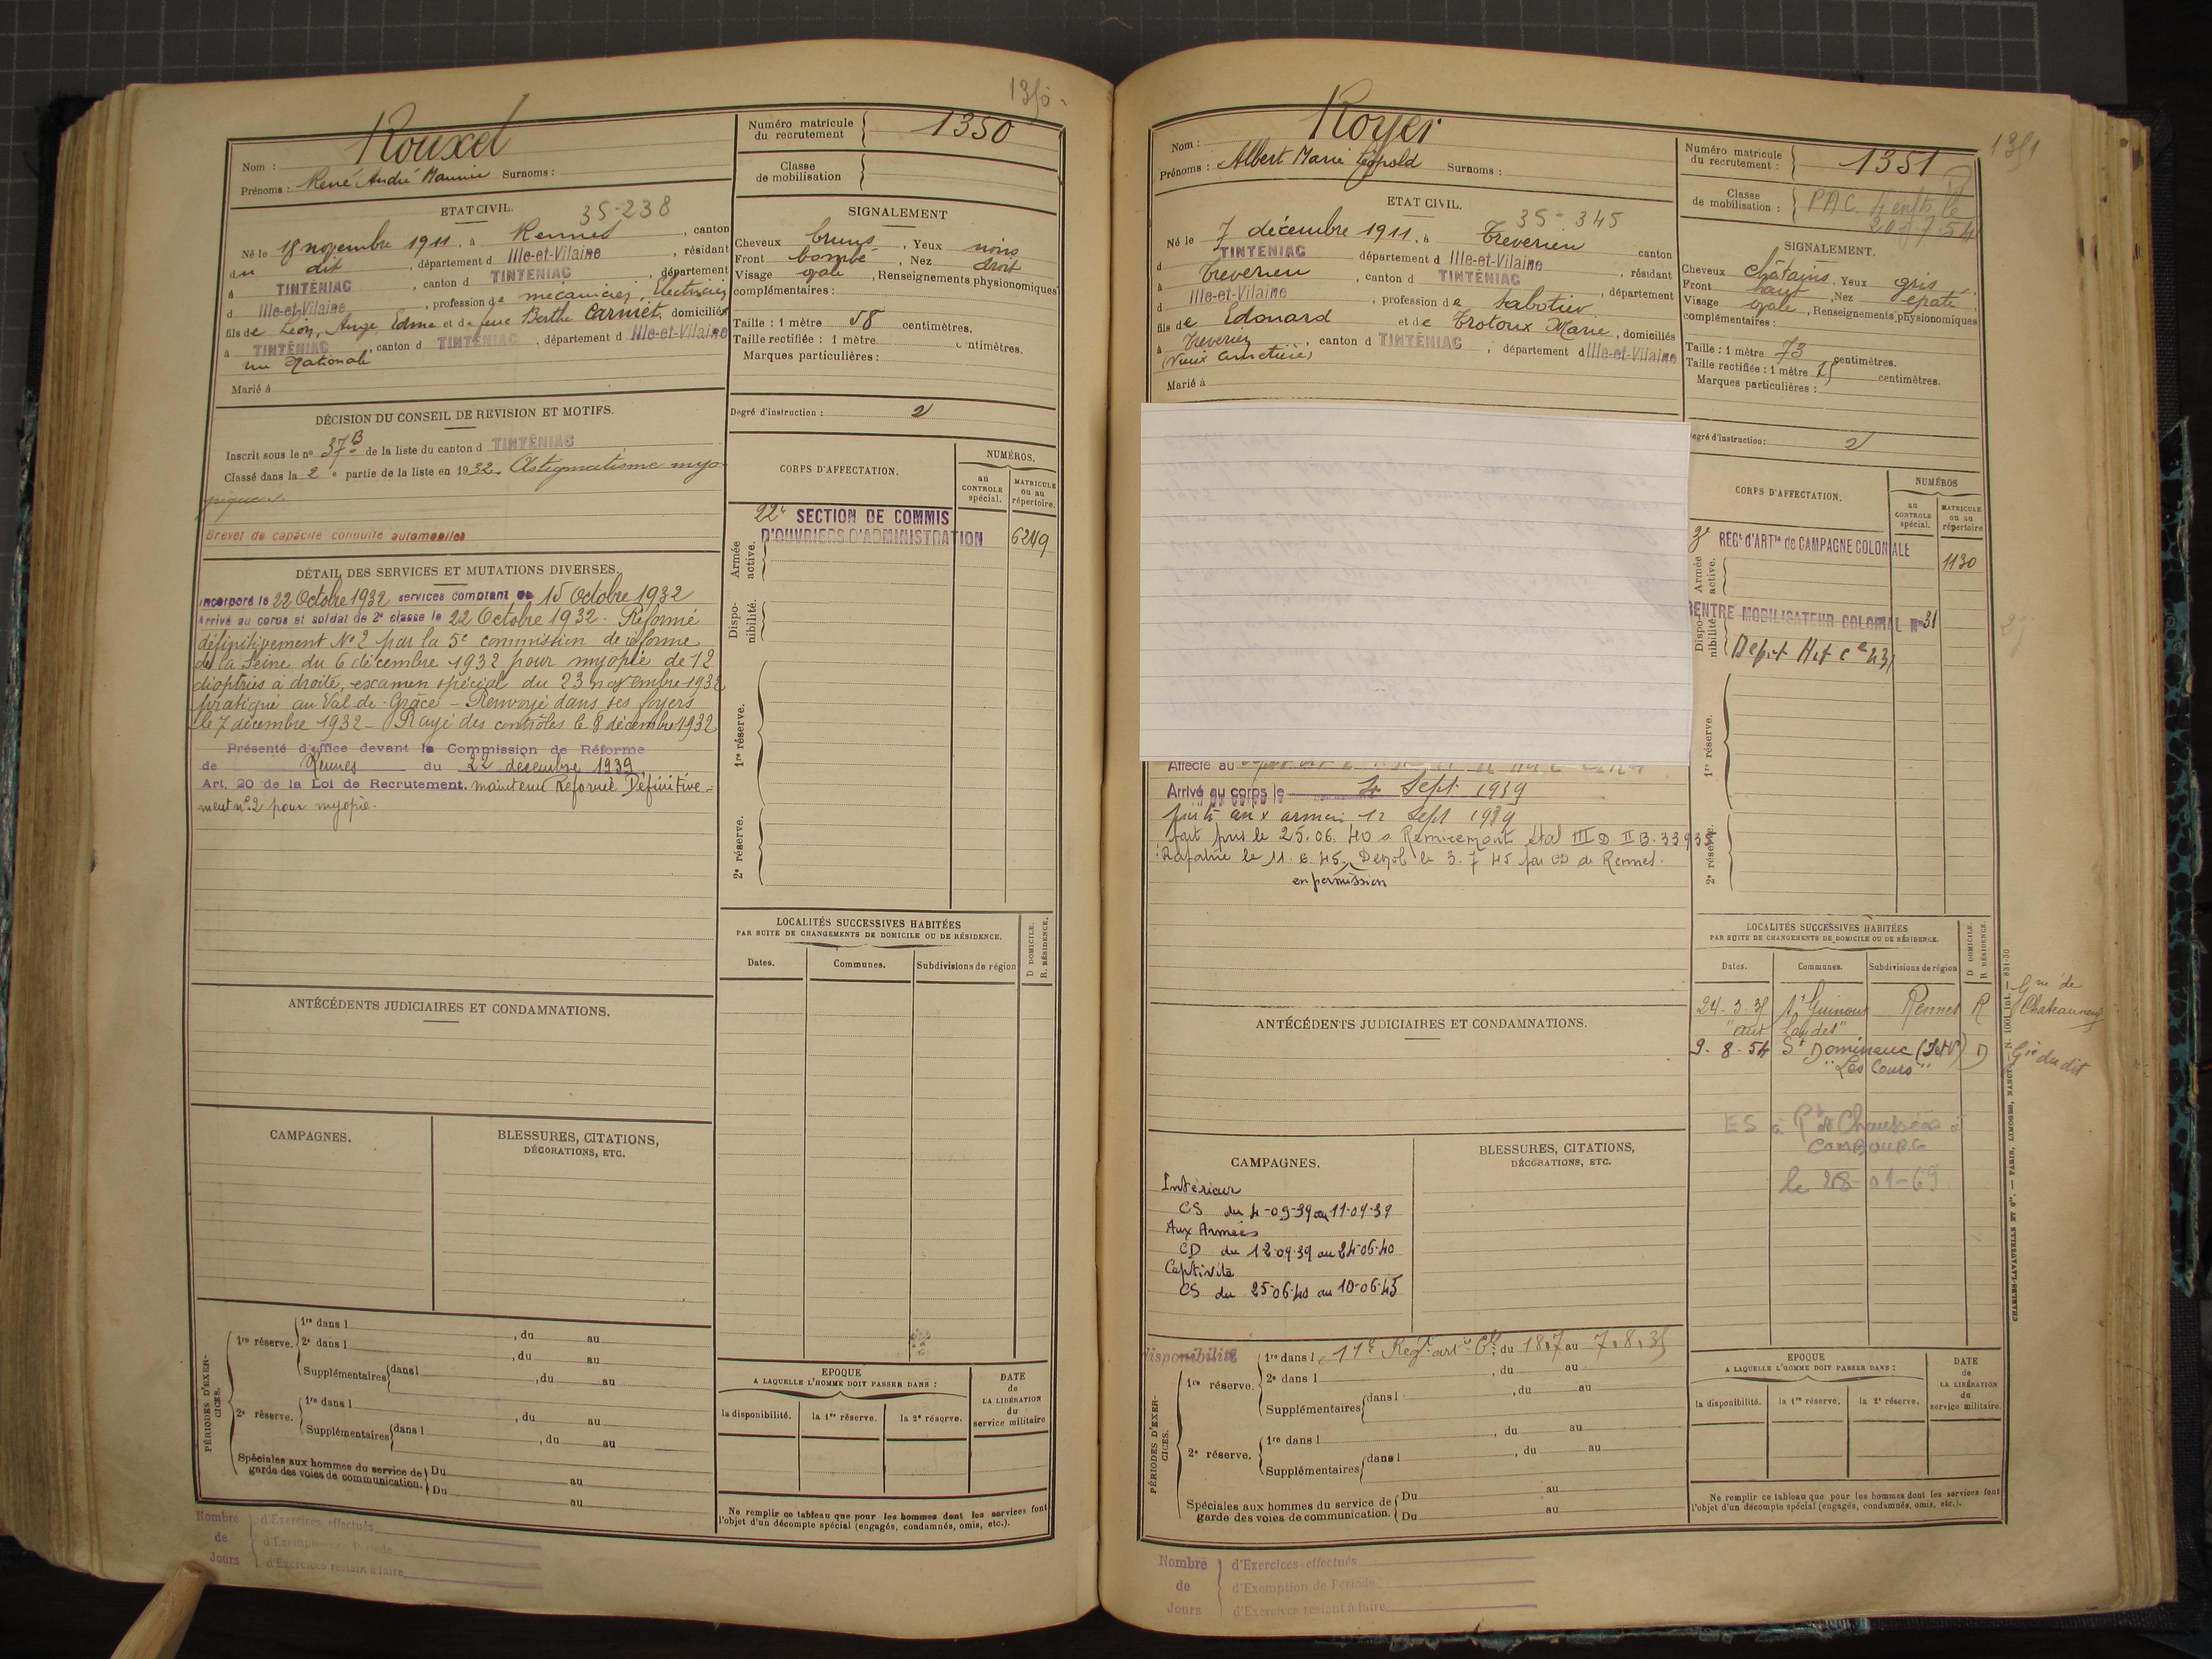 1350
Rouxel
Nom :
Prénoms : René André Maurice Surnoms :
Numéro matricule du recrutement 1350
Classe de mobilisation
ETAT CIVIL.
35-238
Né le 18 novembre 1911, à Rennes, canton
du dit, département d Ille-et-Vilaine, résidant
à TINTÉNIAC, canton d TINTÉNIAC, département
d Ille-et-Vilaine, profession de mécanicien, Electricien
fils de Léon, Ange, Edme et de feue Berthe Carniet, domiciliés
à TINTÉNIAC, canton d TINTÉNIAC, département d Ille-et-Vilaine
Nationale
Marié à
SIGNALEMENT
Cheveux bruns, Yeux noirs
Front bombé, Nez droit
Visage ovale, Renseignements physionomiques
complémentaires :
Taille : 1 mètre 58 centimètres.
Taille rectifiée : 1 mètre centimètres.
Marques particulières :
Degré d'instruction : 2
DÉCISION DU CONSEIL DE REVISION ET MOTIFS.
Inscrit sous le nº 37B de la liste du canton d TINTÉNIAC
Classé dans la 2e partie de la liste en 1932. Astigmatisme myo-
pique
Brevet de capacité conduite automobiles
DÉTAIL DES SERVICES ET MUTATIONS DIVERSES.
Incorporé le 22 Octobre 1932 services comptant du 15 Octobre 1932
Arrivé au corps et soldat de 2e classe le 22 Octobre 1932. Réformé
définitivement Nº 2 par la 5e commission de réforme
de la Seine du 6 décembre 1932 pour myopie de 12
dioptries à droite, examen spécial du 23 novembre 1932
pratiqué au Val-de-Grâce - Renvoyé dans ses foyers
le 7 décembre 1932 - Rayé des contrôles le 8 décembre 1932
Présenté d'office devant la Commission de Réforme
de Rennes du 22 décembre 1939
Art. 20 de la Loi de Recrutement. maintenu Réformé Définitive-
ment nº 2 pour myopie.
CORPS D'AFFECTATION.
NUMÉROS.
au CONTROLE spécial.
MATRICULE ou au répertoire.
22e SECTION DE COMMIS
D'OUVRIERS D'ADMINISTRATION 6249
Armée active.
Dispo-nibilité.
1re réserve.
2e réserve.
LOCALITÉS SUCCESSIVES HABITÉES
PAR SUITE DE CHANGEMENTS DE DOMICILE OU DE RÉSIDENCE.
D DOMICILE.
R. RÉSIDENCE.
Dates. Communes. Subdivisions de région
ANTÉCÉDENTS JUDICIAIRES ET CONDAMNATIONS.
CAMPAGNES.
BLESSURES, CITATIONS,
DÉCORATIONS, ETC.
PÉRIODES D'EXER-CICES.
1re réserve. 1re dans l , du au
2e dans l , du au
Supplémentaires dans l , du au
2e réserve. 1re dans l , du au
Supplémentaires dans l , du au
Spéciales aux hommes du service de garde des voies de communication. Du au
Du au
EPOQUE
A LAQUELLE L'HOMME DOIT PASSER DANS :
la disponibilité. la 1re réserve. la 2e réserve.
DATE de LA LIBÉRATION du service militaire
Ne remplir ce tableau que pour les hommes dont les services font
l'objet d'un décompte spécial (engagés, condamnés, omis, etc.).
Nombre de Jours
d'Exercices effectués
d'Exemption de Période
d'Exercices restant à faire
1351
Royer
Nom :
Prénoms : Albert Marie Léopold Surnoms :
Numéro matricule du recrutement : 1351
Classe de mobilisation : PAC 4 enfts le
20.7.54
ETAT CIVIL.
35-345
Né le 7 décembre 1911, à Treverien canton
d TINTÉNIAC département d Ille-et-Vilaine, résidant
à Treverien, canton d TINTÉNIAC, département
d Ille-et-Vilaine, profession de Sabotier
fils de Edouard et de Trotoux Marie, domiciliés
à Treverien, canton d TINTÉNIAC, département d Ille-et-Vilaine
(Vieux Cimetière)
Marié à
SIGNALEMENT.
Cheveux châtains, Yeux gris
Front haut, Nez épaté
Visage ovale, Renseignements physionomiques
complémentaires :
Taille : 1 mètre 73 centimètres.
Taille rectifiée : 1 mètre 75 centimètres.
Marques particulières :
Degré d'instruction : 2
CORPS D'AFFECTATION.
NUMÉROS
au CONTROLE spécial.
MATRICULE ou au répertoire
3e REGt d'ARTie de CAMPAGNE COLONIALE 1130
Armée active.
CENTRE MOBILISATEUR COLONIAL Nº 31
Dispo-nibilité.
1re réserve.
2e réserve.
Affecté au
Arrivé au corps le 4 Sept. 1939
parti aux armées 12 Sept 1939
fait pris le 25.06.40 à Remiremont Stal III D. II B. 33935
Rapatrié le 11.6.45. Démob le 3.7.45 par CD de Rennes.
en permission
LOCALITÉS SUCCESSIVES HABITÉES
PAR SUITE DE CHANGEMENTS DE DOMICILE OU DE RÉSIDENCE.
D DOMICILE.
R RÉSIDENCE.
Dates. Communes. Subdivisions de région
24-3-35 St Guinoux Rennes R Gie de Chateauneuf
"aux Landes"
9-8-54 St Domineuc (I et V) D Gie du dit
"Les Cours"
ES à Pt de Chaussée à
COMBOURG
le 28-01-69
ANTÉCÉDENTS JUDICIAIRES ET CONDAMNATIONS.
CAMPAGNES.
Intérieur
CS du 4-09-39 au 11-09-39
Aux Armées
CD du 12-09-39 au 24-06-40
Captivité
CS du 25-06-40 au 10-06-45
BLESSURES, CITATIONS,
DÉCORATIONS, ETC.
PÉRIODES D'EXER-CICES.
disponibilité 1re dans l 11e Regt art Cle, du 18.7 au 7.8.35
1re réserve. 2e dans l , du au
Supplémentaires dans l , du au
2e réserve. 1re dans l , du au
Supplémentaires dans l , du au
Spéciales aux hommes du service de garde des voies de communication. Du au
Du au
EPOQUE
A LAQUELLE L'HOMME DOIT PASSER DANS :
la disponibilité. la 1re réserve. la 2e réserve.
DATE de LA LIBÉRATION du service militaire.
Ne remplir ce tableau que pour les hommes dont les services font
l'objet d'un décompte spécial (engagés, condamnés, omis, etc.).
Nombre de Jours
d'Exercices effectués
d'Exemption de Période
d'Exercices restant à faire
CHARLES-LAVAUZELLE ET Cie. — PARIS, LIMOGES, NANCY